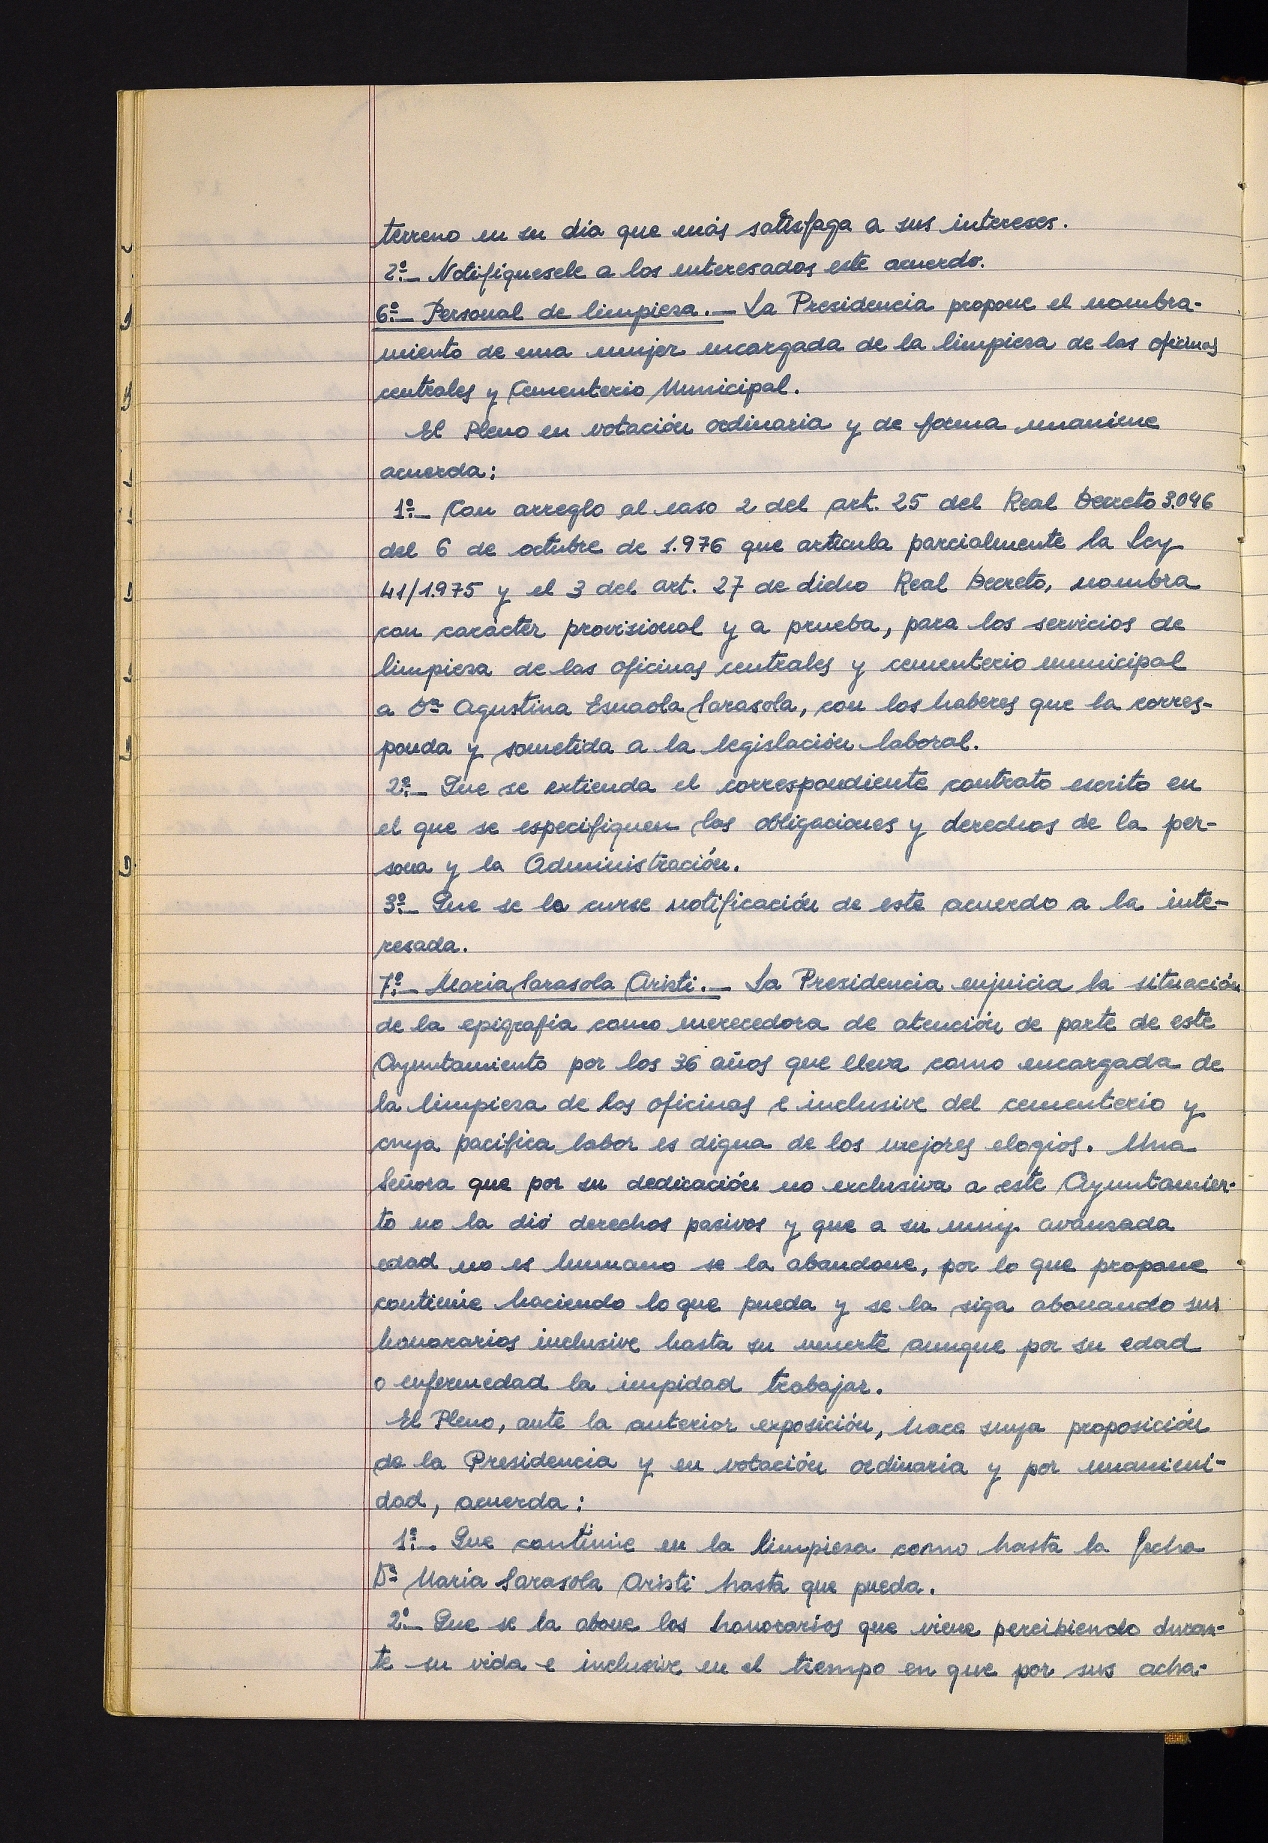 terreno en su dia que más satisfaga a sus intereses.
2º.- Notifíquesele a los interesados este acuerdo.
6º.- Personal de limpiesa.- La Presidencia propone el nombra-
miento de una mujer encargada de la limpiesa de las oficinas
centrales y Cementerio Municipal.
El Pleno en votación ordinaria y de forma unanime
acuerda:
1º.- Con arreglo al caso 2 del art. 25 del Real Decreto 3.046
del 6 de octubre de 1.976 que articula parcialmente la Ley
41/1.975 y el 3 del art. 27 de dicho Real Decreto, nombra
con carácter provisional y a prueba, para los servicios de
limpiesa de las oficinas centrales y cementerio municipal
a Dª Agustina Esnaola Sarasola, con los haberes que la corres-
ponda y sometida a la legislación laboral.
2º.- Que se extienda el correspondiente contrato escrito en
el que se especifiquen las obligaciones y derechos de la per-
sona y la Administración.
3º.- Que se la curse notificación de este acuerdo a la inte-
resada.
7º.- Maria Sarasola Aristi.- La Presidencia enjuicia la situación
de la epigrafia como merecedora de atención de parte de este
Ayuntamiento por los 36 años que lleva como encargada de
la limpiesa de las oficinas e inclusive del cementerio y
cuya pacifica labor es digna de los mejores elogios. Una
Señora que por su dedicación no exclusiva a este Ayuntamien-
to no la dió derechos pasivos y que a su muy avansada
edad no es humano se la abandone, por lo que propone
continúe haciendo lo que pueda y se la siga abonando sus
honorarios inclusive hasta su muerte aunque por su edad
o enfermedad la impidad trabajar.
El Pleno, ante la anterior exposición, hace suya proposición
de la Presidencia y en votación ordinaria y por unanimi-
dad, acuerda:
1º.- Que continúe en la limpiesa como hasta la fecha
Dª Maria Sarasola Aristi hasta que pueda.
2º.- Que se la abone los honorarios que viene percibiendo duran-
te su vida e inclusive en el tiempo en que por sus acha-